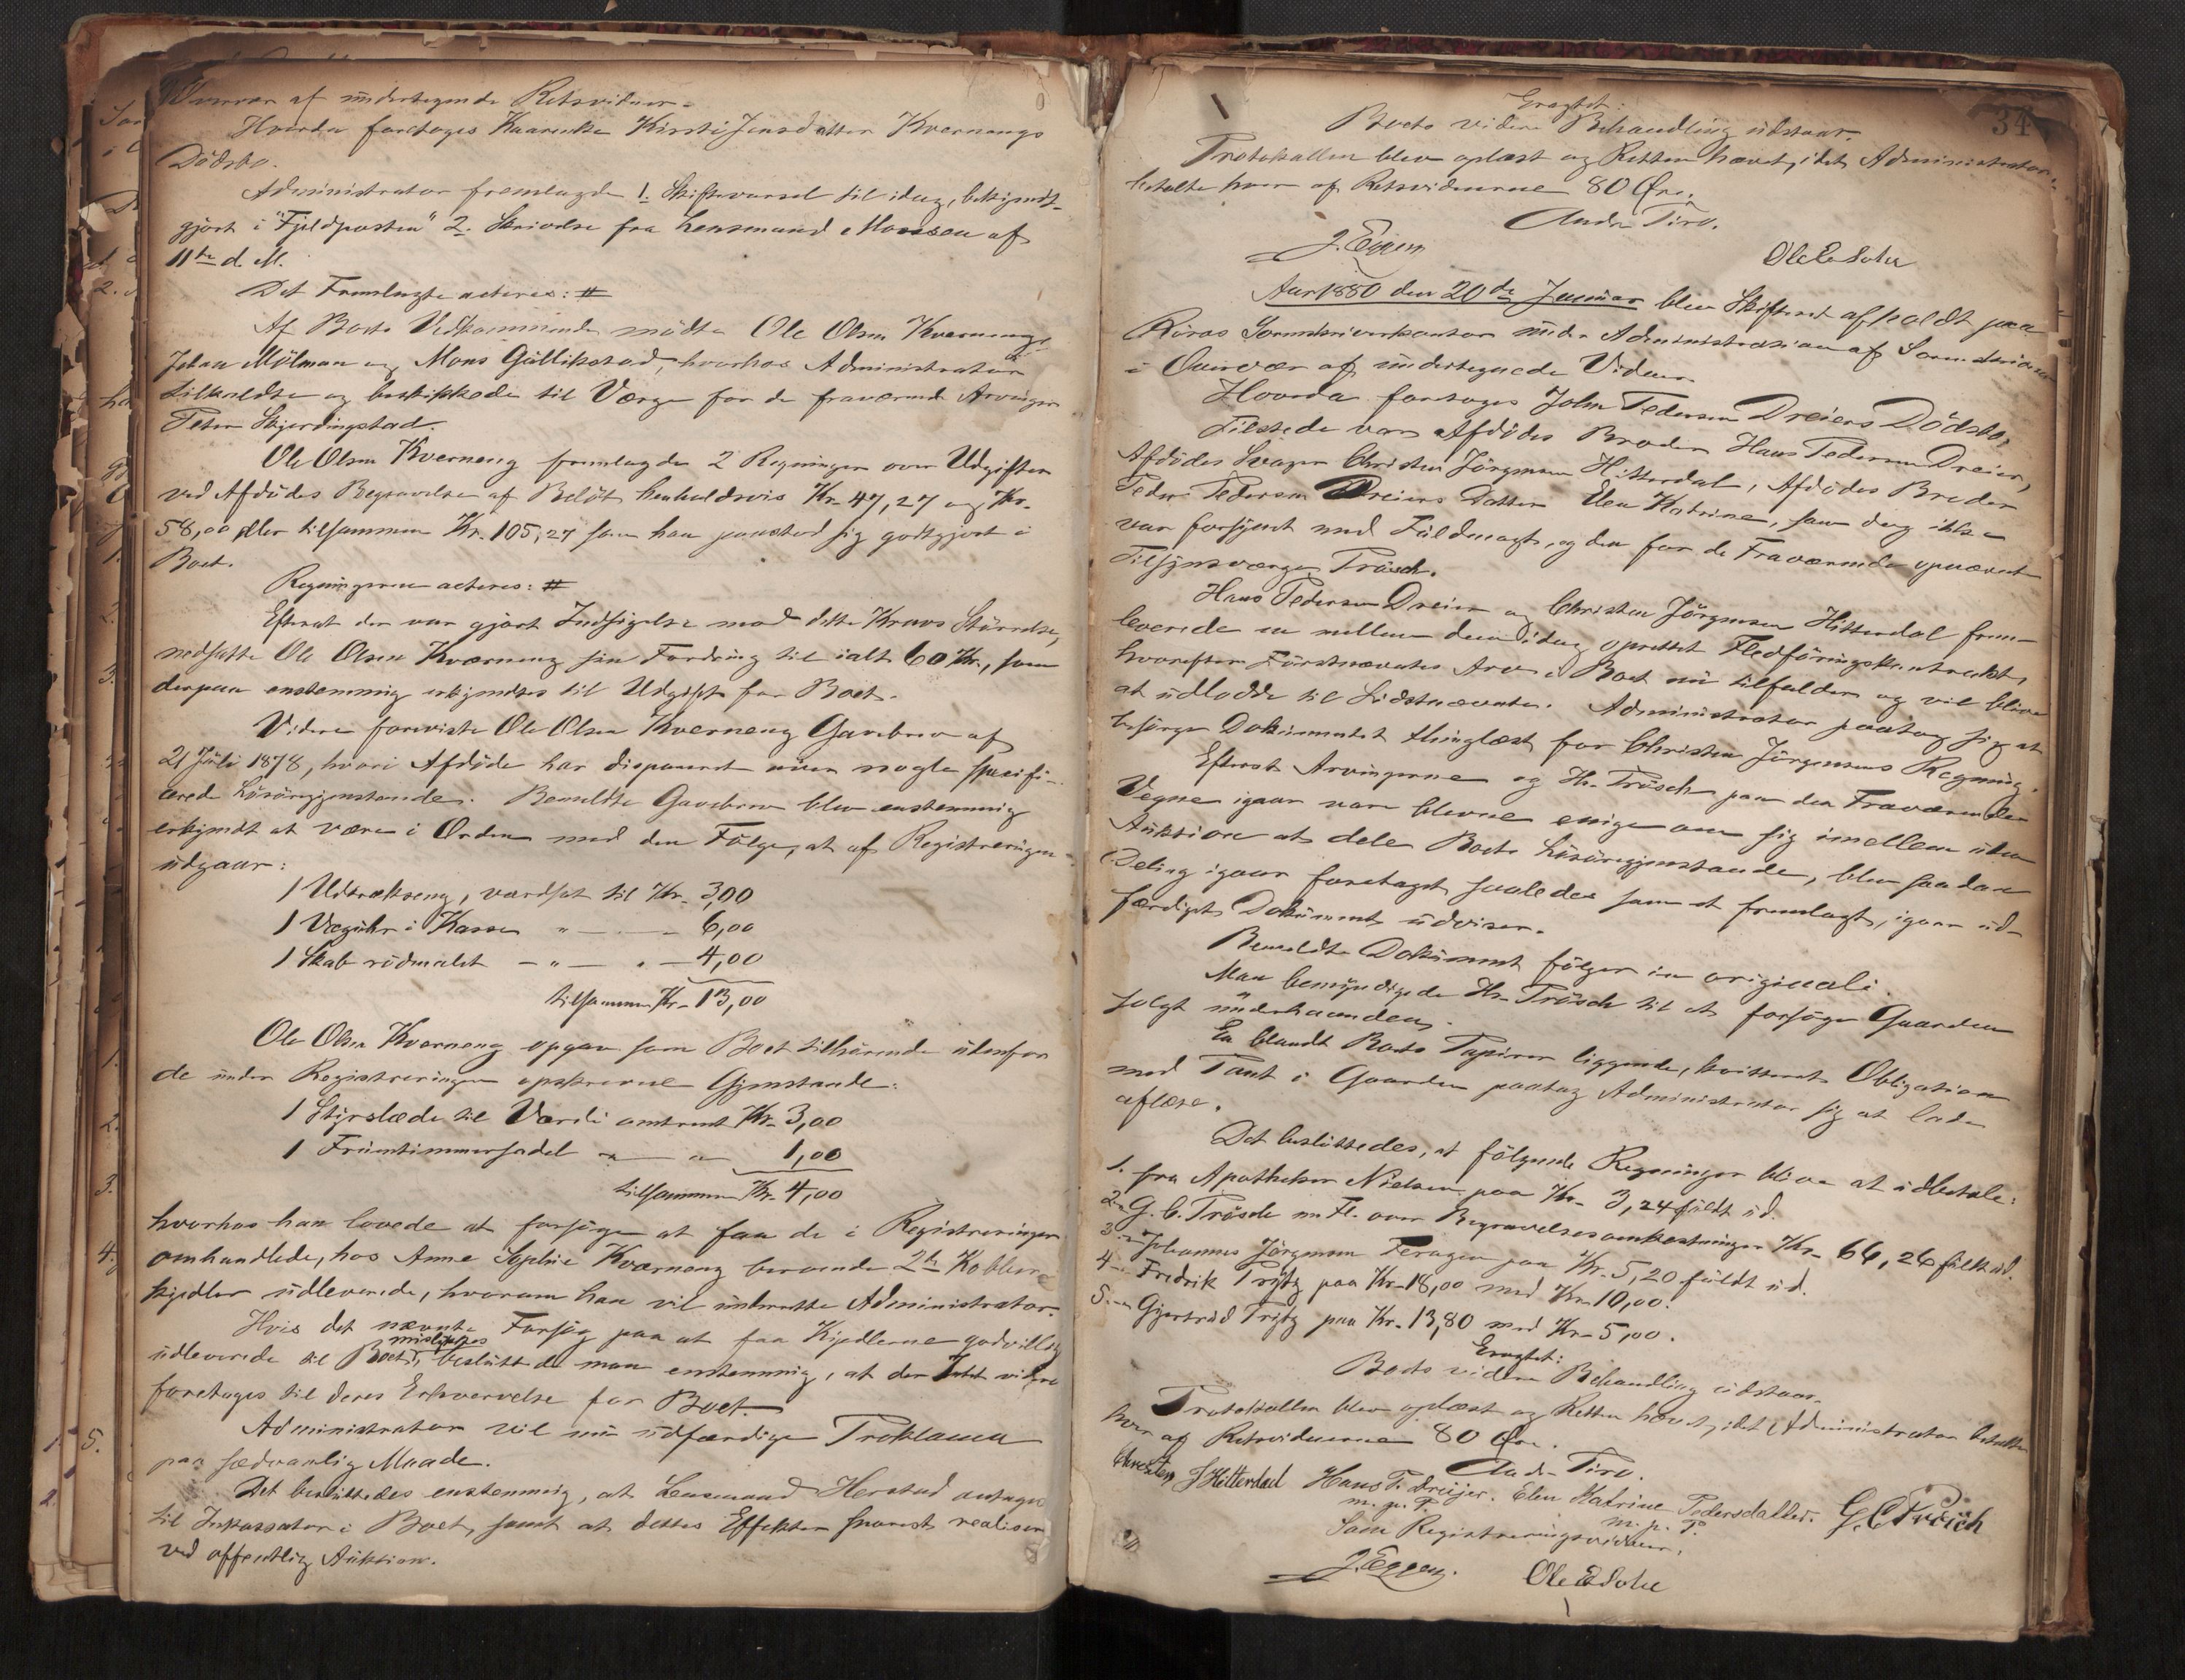 Overvær af undertegnede Retsvidner.
Hvorda foretoges Kaarenke Kirsti Jensdatter Kvernengs
Dödsbo.
Administrator fremlagde 1. Skiftevarsel til idag, bekjendt-
gjort i "Fjeldposten" 2. Skrivelse fra Lensmand Monsen af
11te d. M.
Det Fremlagte acteres: #
Af Boets Vedkommende mödte Ole Olsen Kverneng,
Johan Mölman og Mons Gullikstad, hvorhos Administrator
tilkaldte og beskikkede til Værge for de fraværende Arvinger
Peter Skjerdingstad.
Ole Olsen Kverneng fremlagde 2 Regninger over Udgifter
ved Afdödes Begravelse af Belöb henholdsvis Kr. 47,27 og Kr.
58,00 eller tilsammen Kr. 105,27 som han paastod sig godtgjort i
Boet.
Regningerne acteres: #
Efterat der var gjort Indsigelse mod dette Kravs Störrelse,
nedsatte Ole Olsen Kværneng sin Fordring til ialt 60 Kr., som
derpaa enstemmig erkjendtes til Udgift for Boet.
Videre foreviste Ole Olsen Kverneng Gavebrev af
21 Juli 1878, hvori Afdöde har disponeret over nogle specifi-
cerede Lösöregjenstande. Bemeldte Gavebrev blev enstemmig
erkjendt at være i Orden med den Fölge, at af Registreringen
udgaar:
1 Udtrækseng, værdsat til Kr. 3,00
1 Væguhr i Kasse " — - 6,00
1 Skab rödmalet - " — " - 4,00
tilsammen Kr. 13,00
Ole Olsen Kverneng opgav som Boet tilhörende udenfor
de under Registreringen opskrevne Gjenstande:
1 Styrslæde til Værdi omtrent Kr. 3,00
1 Fruentimmersadel " — " 1,00
tilsammen Kr. 4,00
hvorhos han lovede at forsöge at faa de i Registreringen
omhandlede, hos Anne Sophie Kværneng beroende 2de Kobber-
kjedler udleverede, hvorom han vil underrette Administrator.
Hvis det nævnte Forsög paa at faa Kjedlerne godvillig
udleverede til Boet mislykkes, besluttede man enstemmig, at der Intet videre
foretages til deres Erhvervelse for Boet.
Administrator vil nu udfærdige Proklama
paa sædvanlig Maade.
Det besluttedes enstemmig, at Lensmand Herstad antages
til Inkassator i Boet, samt at dettes Effekter snarest realiseres
ved offentlig Auktion.
34
Eragtet:
Boets videre Behandling udstaar.
Protokollen blev oplæst og Retten hævet, idet Administrator
betalte hver af Retsvidnerne 80 Öre.
Andr. Tiro.
J. Eggen Ole E Sohr
Aar 1880 den 20de Januar blev Skifteret afholdt paa
Röros Sorenskriverkontor under Administration af Sorenskriveren
i Overvær af undertegnede Vidner.
Hvorda foretoges John Pedersen Dreiers Dödsbo.
Tilstede var Afdödes Broder Hans Pedersen Dreier,
Afdödes Svoger Christen Jörgensen Hitterdal, Afdödes Broder
Peder Pedersen Dreiers Datter Elen Katrine, som dog ikke
var forsynet med Fuldmagt, og den for de Fraværende opnævnte
Tilsynsværge Prösch.
Hans Pedersen Dreier og Christen Jörgensen Hitterdal frem-
leverede en mellem dem idag oprettet Fledföringskontrakt,
hvorefter Förstnævntes Arv i Boet nu tilfalder og vil blive
at udlodde til Sidstnævnte. Administrator paatog sig at
besörge Dokumentet thinglæst for Christen Jörgensens Regning.
Efterat Arvingerne og Hr. Prösch paa den Fraværendes
Vegne igaar vare blevne enige om sig imellem uden
Auktion at dele Boets Lösöregjenstande, blev saadan
Deling igaar foretaget saaledes som et fremlagt, igaar ud-
færdiget Dokument udviser.
Bemeldte Dokument fölger in originali.
Man bemyndigede Hr. Prösch til at forsöge Gaarden
solgt underhaanden.
En blandt Boets Papirer liggende, kvitteret Obligation
med Pant i Gaarden paatog Administrator sig at lade
aflæse.
Det besluttedes, at fölgende Regninger blive at udbetale:
1. fra Apotheker Nielsen paa Kr. 3,24 fuldt ud.
2. " G. C. Prösch m. Fl. over Begravelsesomkostninger Kr. 66,26 fuldt ud.
3. " Johannes Jörgensen Feragen paa Kr. 5,20 fuldt ud.
4. " Fredrik Prytz paa Kr. 18,00 med Kr. 10,00.
5. " Gjertrud Prytz paa Kr. 13,80 med Kr. 5,00.
Eragtet:
Boets videre Behandling udstaar.
Protokollen blev oplæst og Retten hævet, idet Administrator betalte
hver af Retsvidnerne 80 Öre.
Andr. Tiro.
Christen J Hitterdal Hans P. Dreijer. Elen Katrine Pedersdatter. G. C Prösch
m. p. P. m. p. P.
Som Registreringsvidner:
J. Eggen. Ole E Sohr